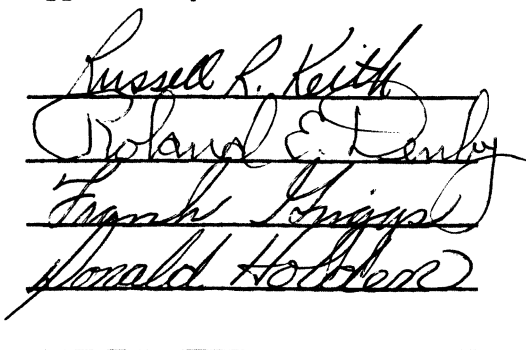 Russell R. Keith
Roland E. Denby
Frank Griggs
Donald Holden